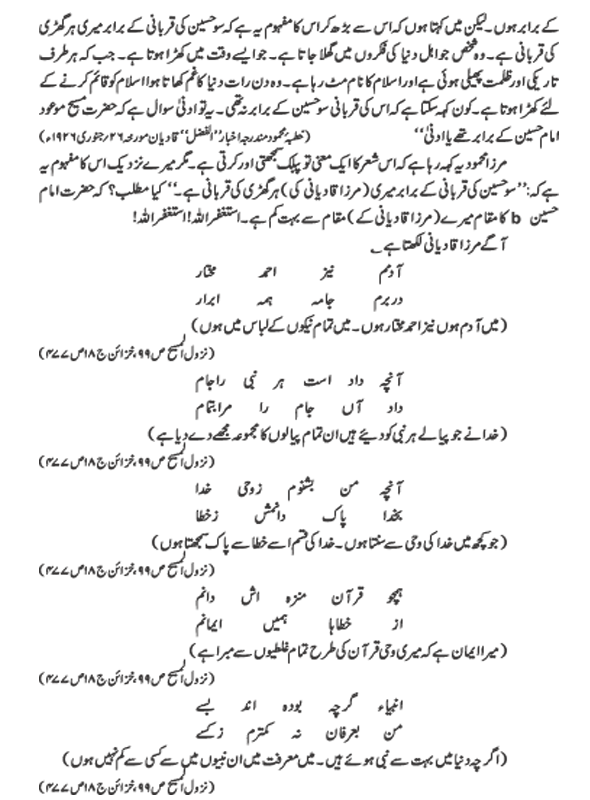 کے برابر ہوں۔ لیکن میں کہتا ہوں کہ اس سے بڑھ کر اس کا مفہوم یہ ہے کہ سو حسین کی قربانی کے برابر میری ہر گھڑی
کی قربانی ہے۔ وہ شخص جو اہل دنیا کی فکروں میں گھلا جاتا ہے۔ جو ایسے وقت میں کھڑا ہوتا ہے۔ جب کہ ہر طرف
تاریکی اور ظلمت پھیلی ہوئی ہے اور اسلام کا نام مٹ رہا ہے۔ وہ دن رات دنیا کا غم کھاتا ہوا اسلام کو قائم کرنے کے
لئے کھڑا ہوتا ہے۔ کون کہہ سکتا ہے کہ اس کی قربانی سو حسین کے برابر نہ تھی۔ یہ تو ادنیٰ سوال ہے کہ حضرت مسیح موعود
امام حسین کے برابر تھے یا ادنیٰ‘‘ (خطبہ محمود مندرجہ اخبار ’’الفضل‘‘ قادیان مورخہ ۲۶؍جنوری ۱۹۲۶ء)
مرزا محمود یہ کہہ رہا ہے کہ اس شعر کا ایک معنی تو پبلک سمجھتی اور کرتی ہے۔ مگر میرے نزدیک اس کا مفہوم یہ
ہے کہ: ’’سو حسین کی قربانی کے برابر میری (مرزا قادیانی کی) ہر گھڑی کی قربانی ہے۔‘‘ کیا مطلب؟ کہ حضرت امام
حسین b کا مقام میرے (مرزا قادیانی کے) مقام سے بہت کم ہے۔ استغفر اللہ! استغفر اللہ!
آگے مرزا قادیانی لکھتا ہے ؎
آدمم نیز احمد مختار
دربرم جامہ ہمہ ابرار
(میں آدم ہوں نیز احمد مختار ہوں۔ میں تمام نیکوں کے لباس میں ہوں)
(نزول المسیح ص۹۹، خزائن ج۱۸ ص۴۷۷)
آنچہ داد است ہر نبی راجام
داد آں جام را مرابتمام
(خدا نے جو پیالے ہر نبی کو دیئے ہیں ان تمام پیالوں کا مجموعہ مجھے دے دیا ہے)
(نزول المسیح ص۹۹، خزائن ج۱۸ ص۴۷۷)
آنچہ من بشنوم زوحی خدا
بخدا پاک دانمش زخطا
(جو کچھ میں خدا کی وحی سے سنتا ہوں۔ خدا کی قسم اسے خطا سے پاک سمجھتا ہوں)
(نزول المسیح ص۹۹، خزائن ج۱۸ ص۴۷۷)
ہمچو قرآن منزہ اش دانم
از خطاہا ہمیں ایمانم
(میرا ایمان ہے کہ میری وحی قرآن کی طرح تمام غلطیوں سے مبرا ہے)
(نزول المسیح ص۹۹، خزائن ج۱۸ ص۴۷۷)
انبیاء گرچہ بودہ اند بسے
من بعرفان نہ کمترم زکسے
(اگرچہ دنیا میں بہت سے نبی ہوئے ہیں۔ میں معرفت میں ان نبیوں میں سے کسی سے کم نہیں ہوں)
(نزول المسیح ص۹۹، خزائن ج۱۸ ص۴۷۷)